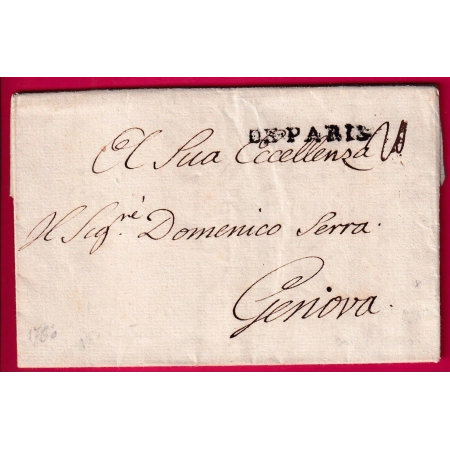 DE PARIS
A Sua Eccellenza
Il Sig.ré Domenico Serra.
Genova.
1760